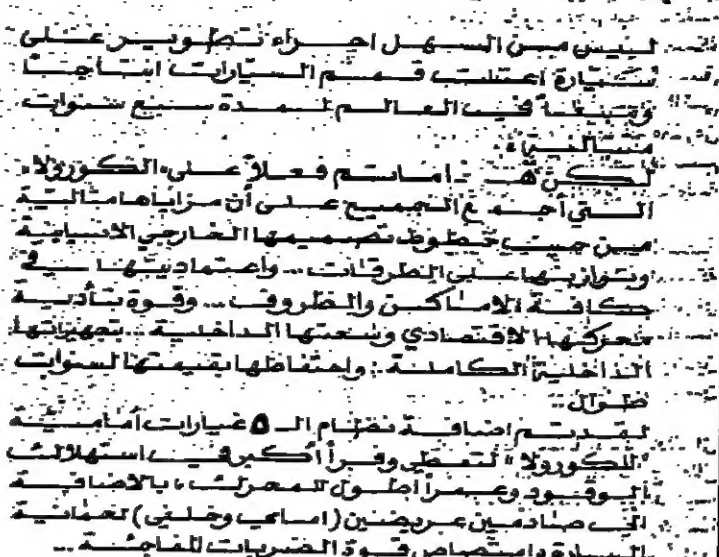 ليس من السهل اجراء تطوير على
سيارة اعتلت قمم السيارات انتاجاً
ومبيعاً في العالم لمدة سبع سنوات
متتالية
لكن هذا ماتم فعلاً على الكورولا
التي أجمع الجميع على أن مزاياها مثالية
من حيث خطوط تصميمها الخارجي الانسيابية
وتوازنها على الطرقات .. واعتماديتها في
كافة الاماكن والظروف ... وقوة تأدية
محركها الاقتصادي وسعتها الداخلية .. تجهيزاتها
الداخلية الكاملة .. واحتفاظها بقيمتها لسنوات
طوال ..
لقد تم اضافة نظام الـ ٥ غيارات أمامية
"للكورولا" لتعطي وفراً أكبر في استهلاك
الوقود وعمراً اطول للمحرك ، بالاضافة
الى صدامين عريضين (امامي وخلفي) لحماية
السيارة وامتصاص قوة الضربات المفاجئة ...